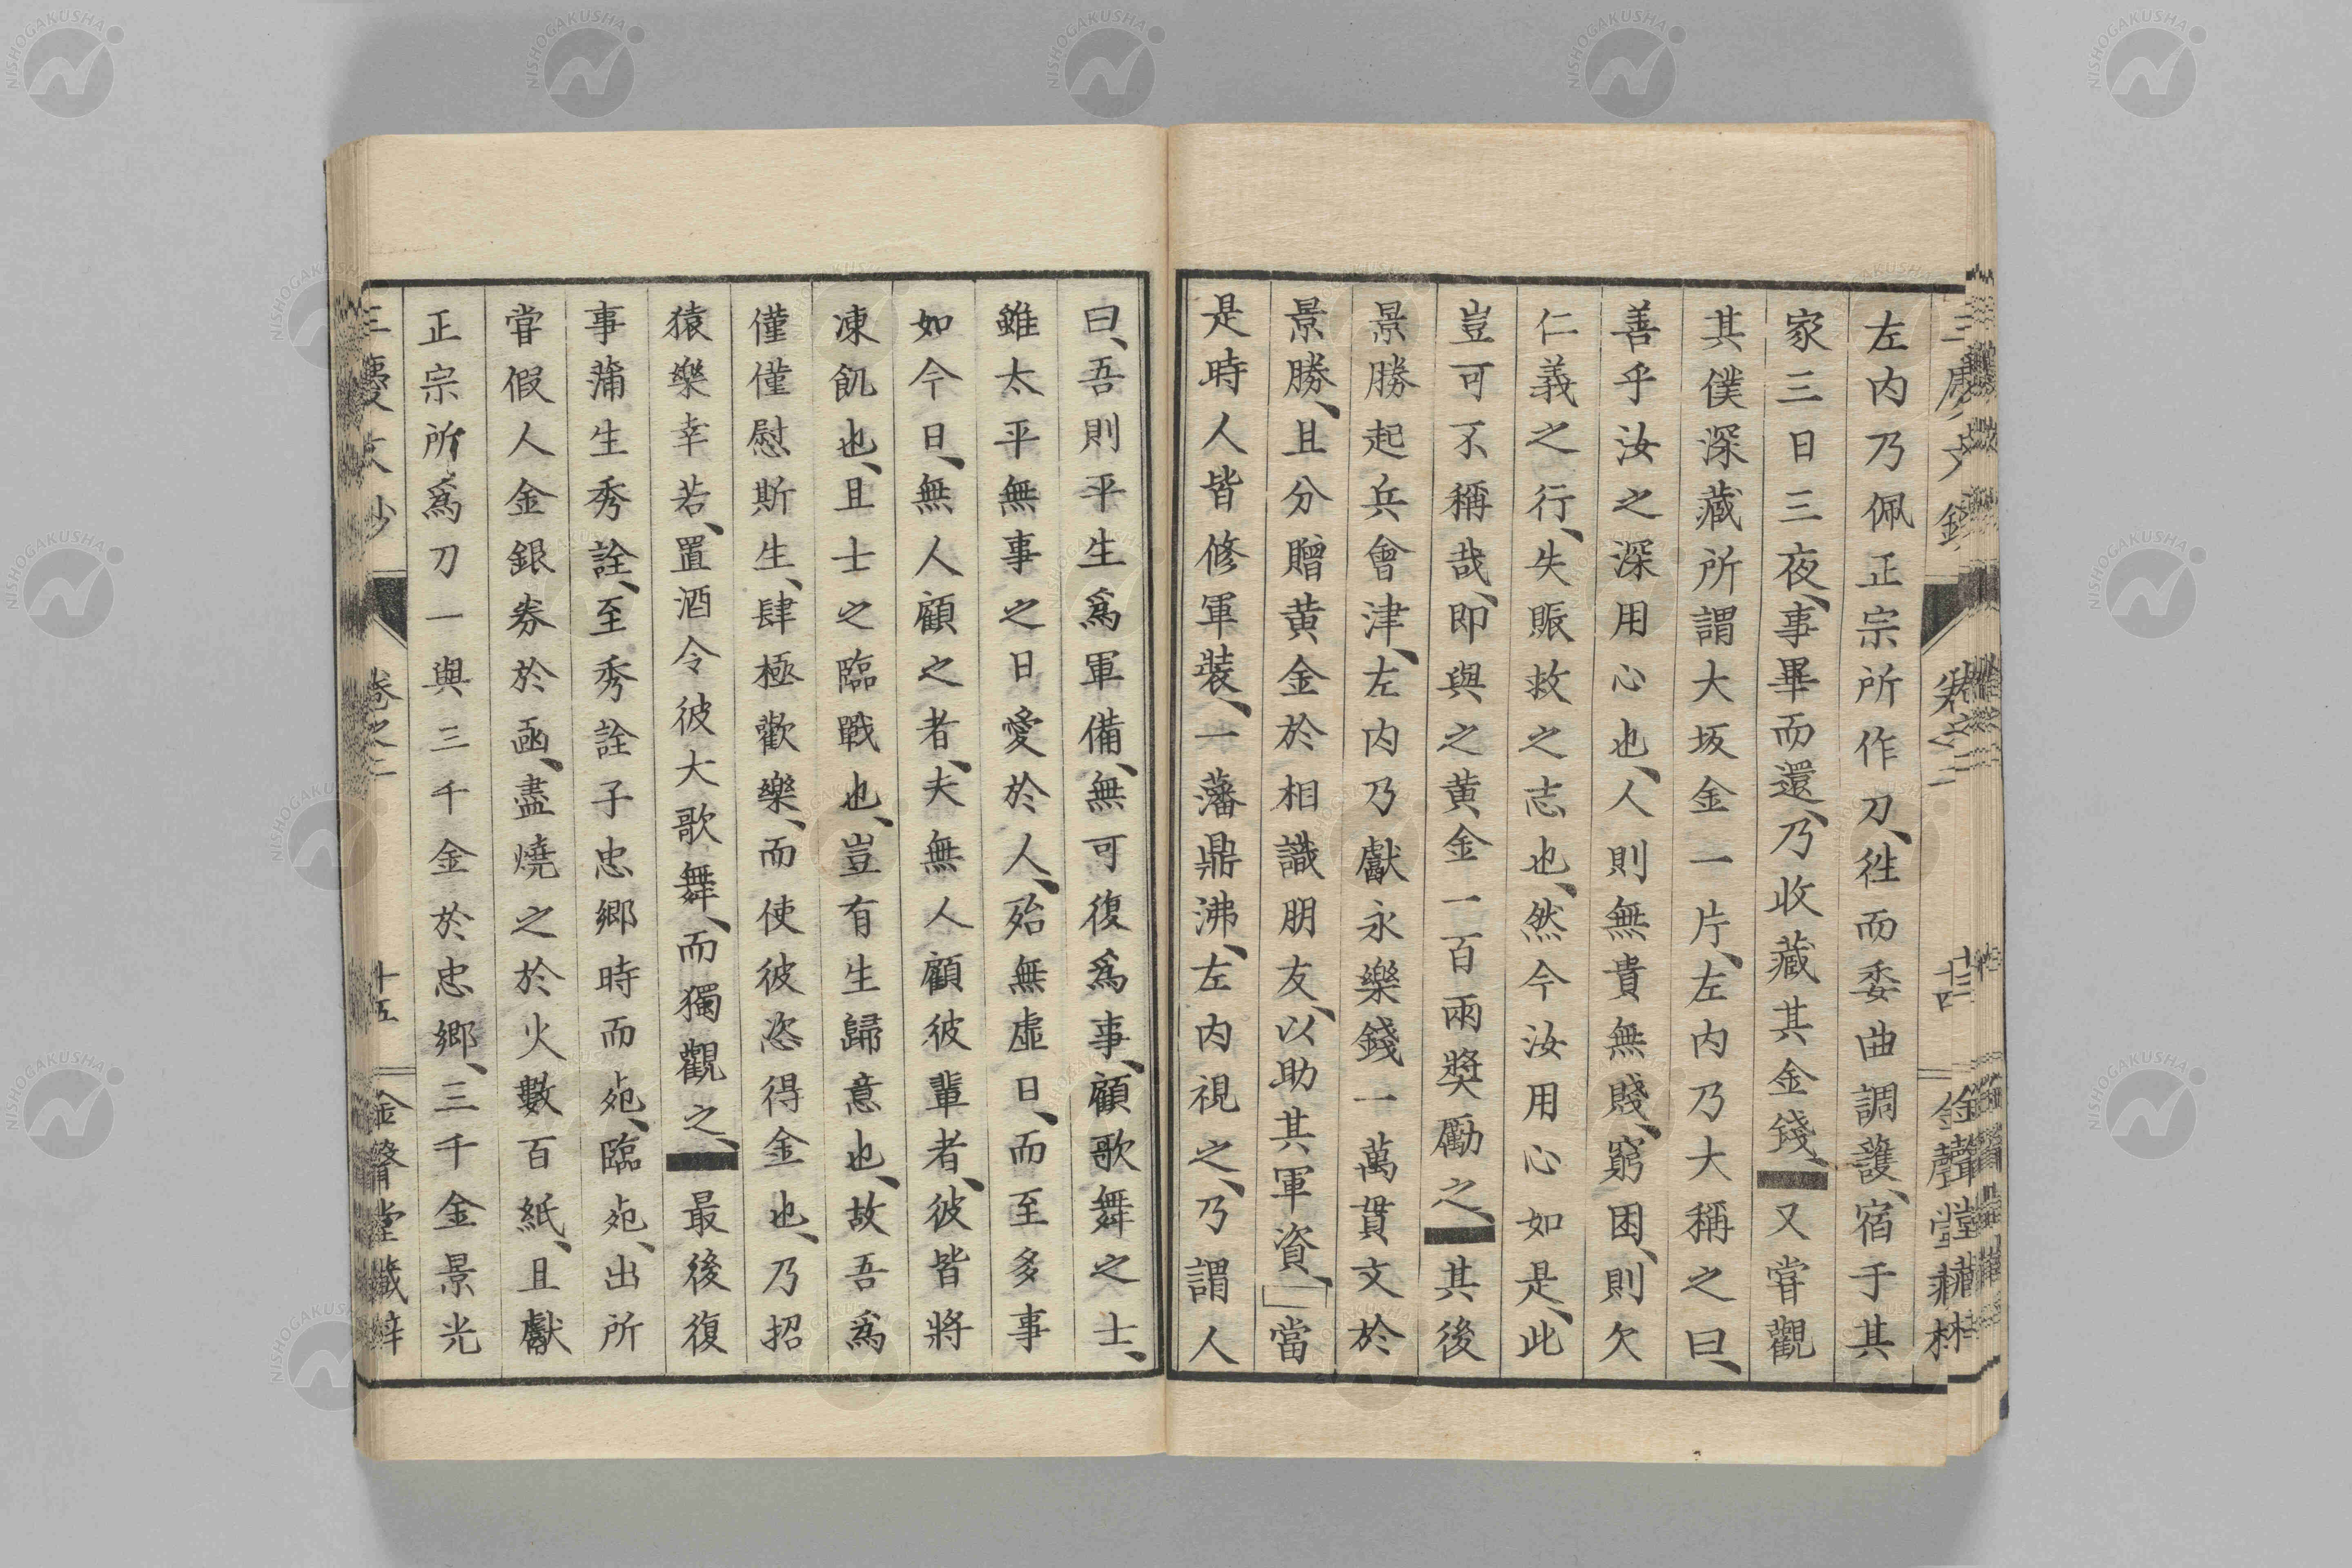 左内乃佩正宗所作刀、徃而委曲調護、宿于其
家三日三夜、事畢而還、乃收藏其金錢、又甞觀
其僕深藏所謂大坂金一片、左内乃大稱之曰、
善乎汝之深用心也、人則無貴無賤、窮困、則欠
仁義之行、失賑救之志也、然今汝用心如是、此
豈可不稱哉、即與之黄金一百兩奬勵之、其後
景勝起兵會津、左内乃獻永樂錢一萬貫文於
景勝、且分贈黄金於相識朋友、以助其軍資、」當
是時人皆修軍裝、一藩鼎沸、左内視之、乃謂人
曰、吾則平生爲軍備、無可復爲事、顧歌舞之士、
雖太平無事之日愛於人、殆無虚日、而至多事
如今日、無人顧之者、夫無人顧彼輩者、彼皆將
凍飢也、且士之臨戰也、豈有生歸意也、故吾爲
僅僅慰斯生、肆極歡樂、而使彼恣得金也、乃招
猿樂幸若、置酒令彼大歌舞、而獨觀之、最後復
事蒲生秀詮、至秀詮子忠郷時而死、臨死、出所
甞假人金銀券於凾、盡燒之於火數百紙、且獻
正宗所爲刀一與三千金於忠郷、三千金景光
三慶文鈔
卷之二
十五
金聲堂藏梓
十四